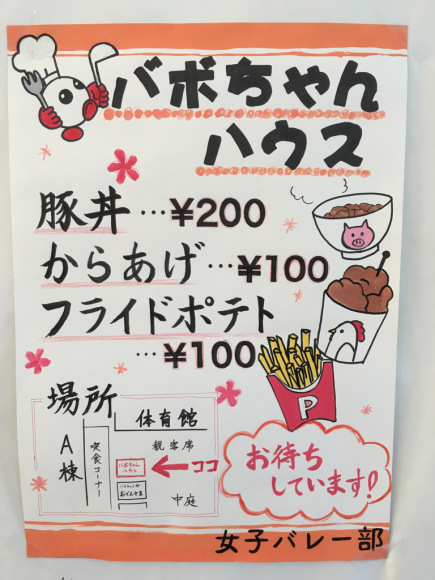 バボちゃん
ハウス
豚丼…¥200
からあげ…¥100
フライドポテト
…¥100
P
場所
体育館
A棟
喫食コーナー
観客席
バボちゃん
ハウス
ココ
おでんやさん
中庭
お待ち
しています!
女子バレー部